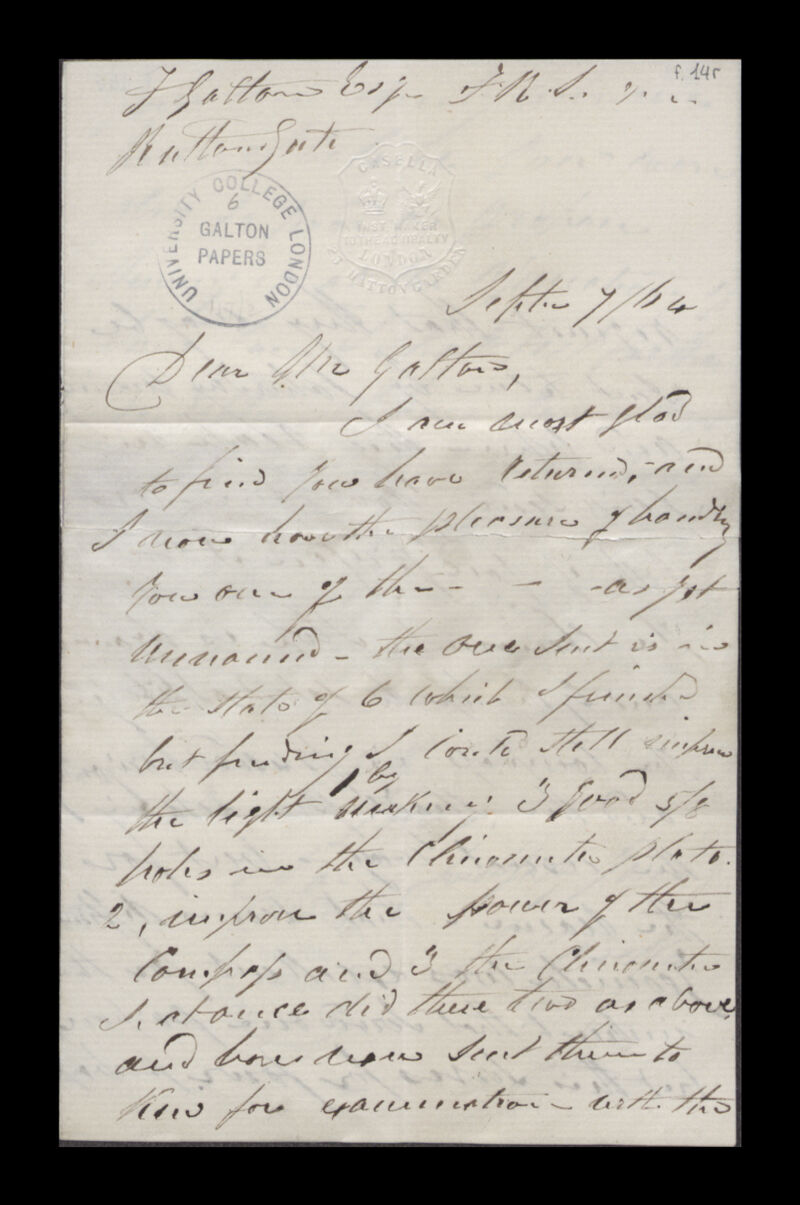 f. 14r
F Galton Esqr F.R.S.
Rutland Gate
UNIVERSITY COLLEGE LONDON
6
GALTON
PAPERS
CASELLA
INST. MAKER
TO THE ADMIRALTY
LONDON
23 HATTON GARDEN
Septr 7/64
Dear Mr Galton,
I am most glad
to find you have returned, and
I now have the pleasure of handing
you one of the - - - as yet
unnamed - the one sent is in
the state of 6 which I finished
but finding I could still improve
the light by making 3 good 5/8
holes in the Clinometer plate.
2, improve the power of the
Compass and 3 the Clinometer
I at once did these two as above,
and have now sent them to
Kew for examination with the